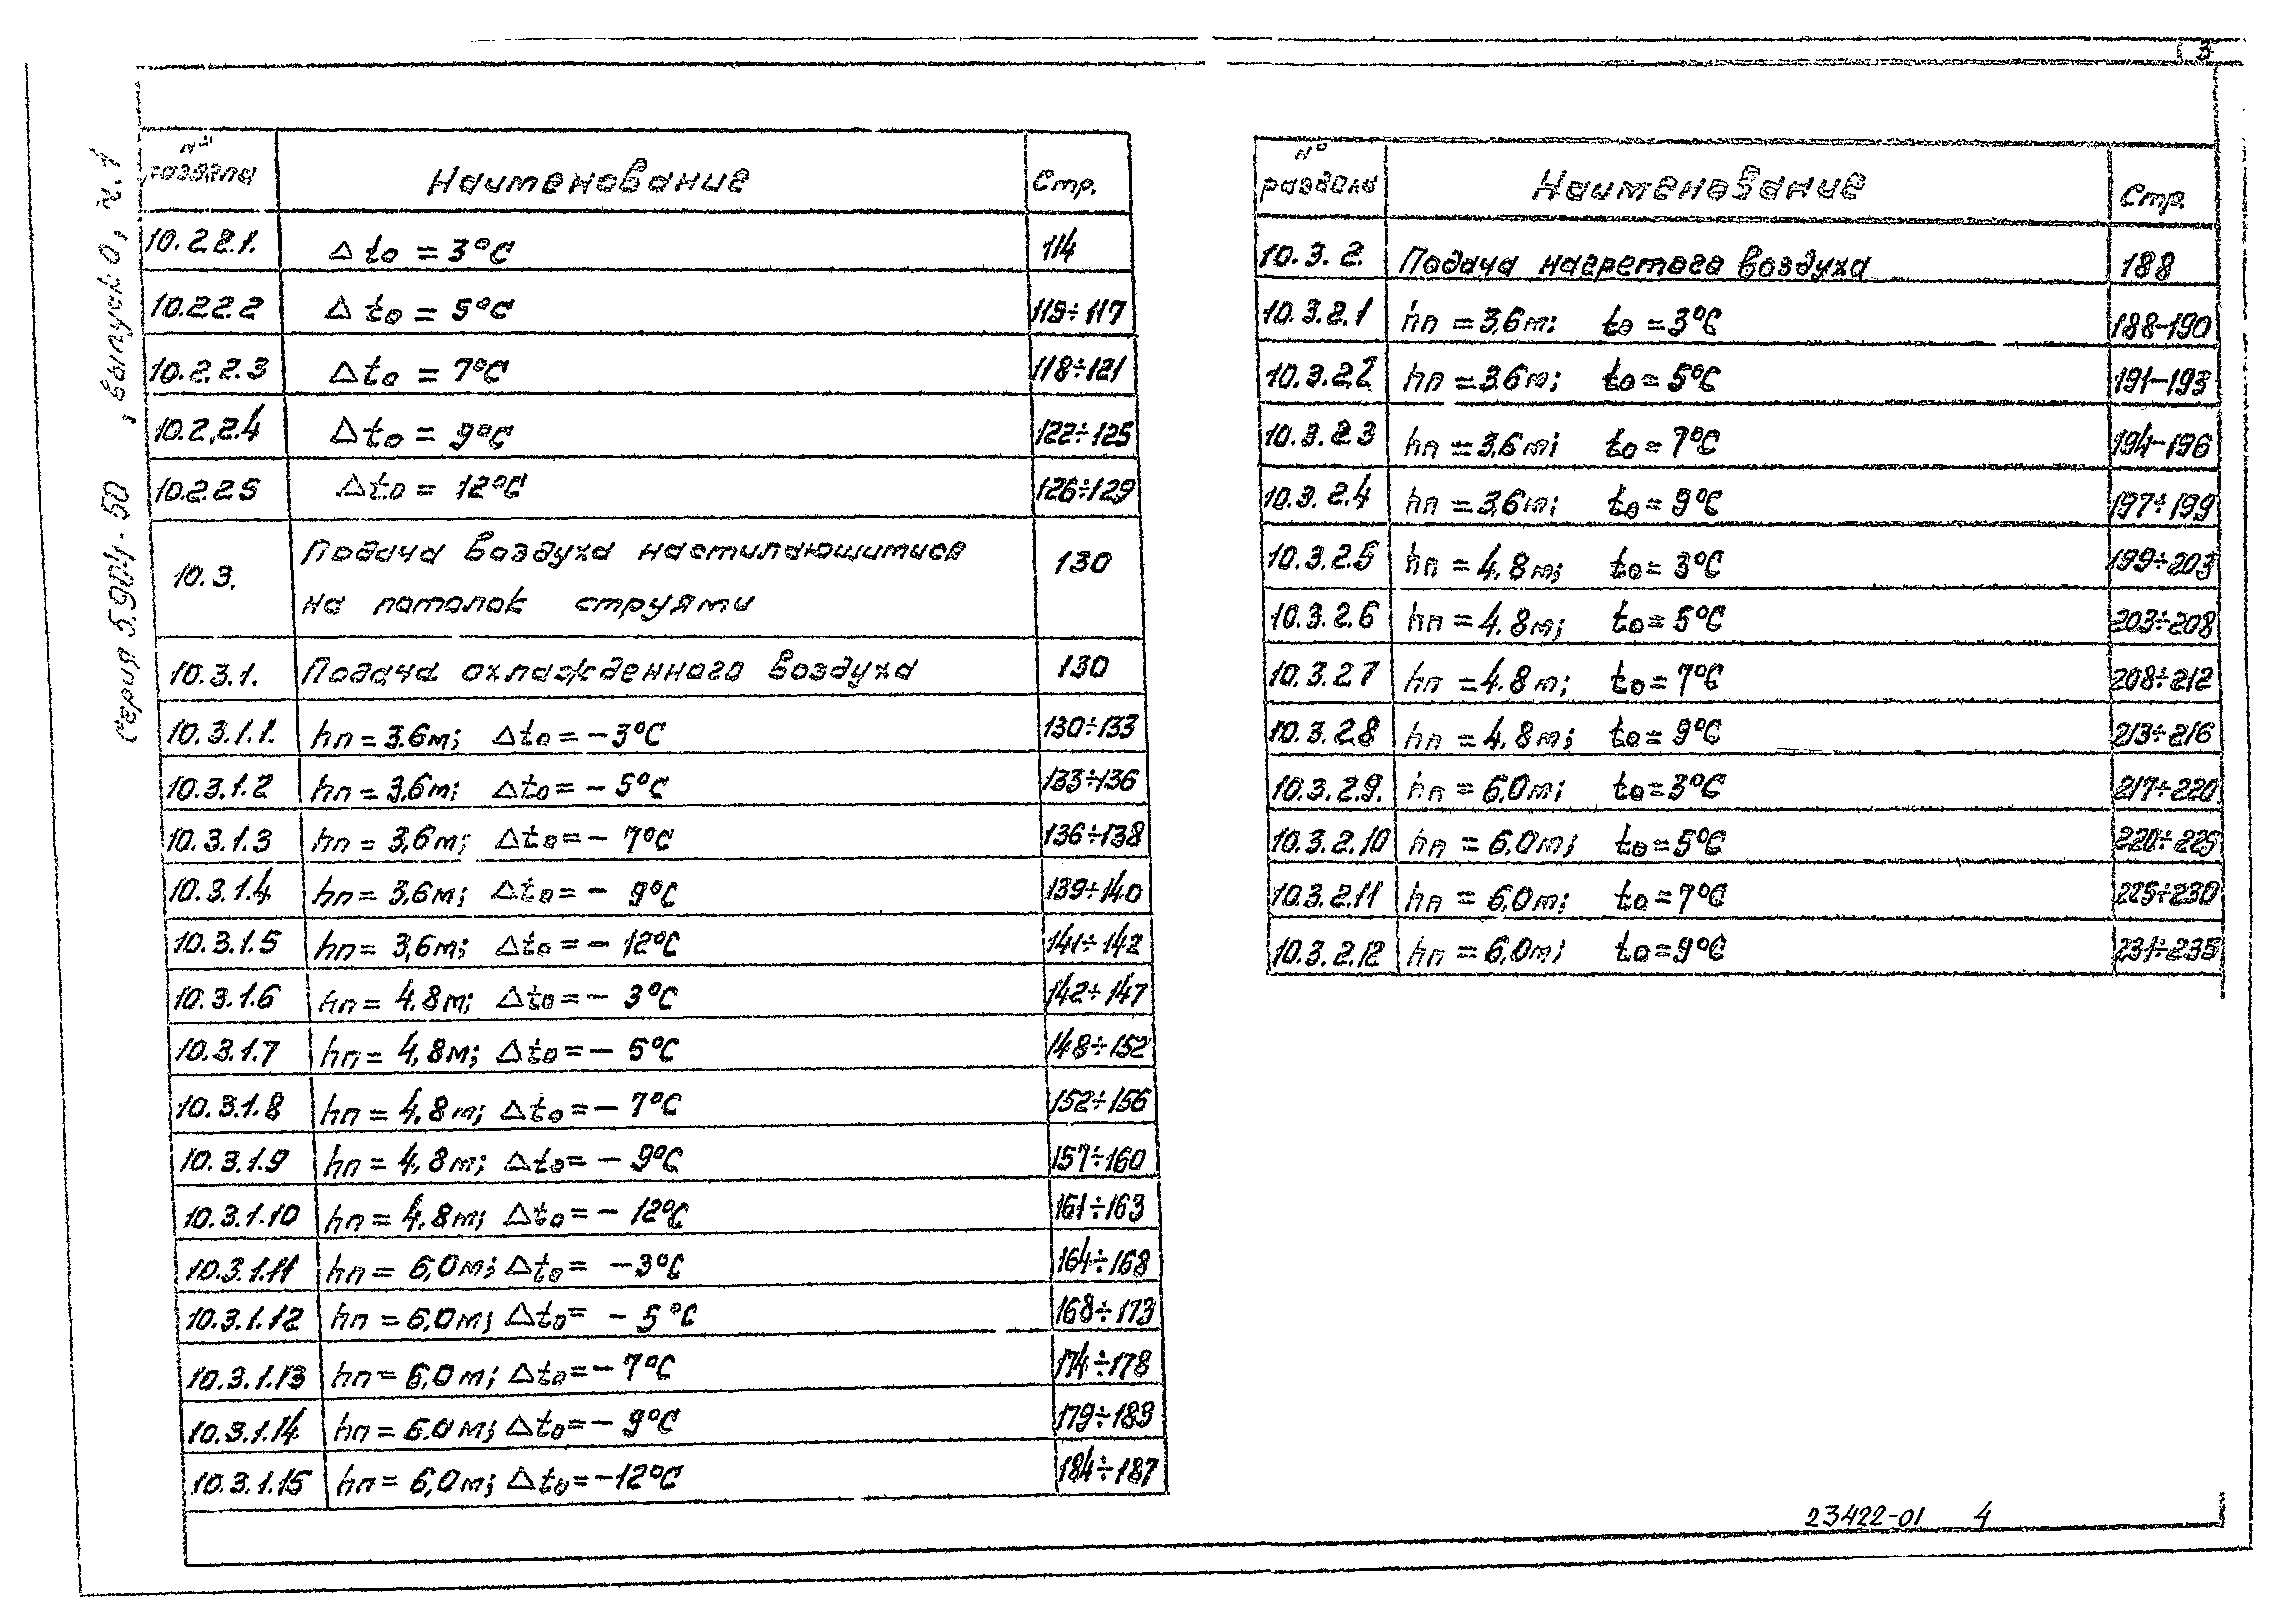 3
Серия 5.904-50 , выпуск 0, ч.1
№
раздела Наименование Стр.
10.2.2.1. Δ to = 3°C 114
10.2.2.2 Δ to = 5°C 115÷117
10.2.2.3 Δto = 7°C 118÷121
10.2.2.4 Δto = 9°C 122÷125
10.2.2.5 Δto = 12°C 126÷129
10.3. Подача воздуха настилающимися 130
на потолок струями
10.3.1. Подача охлажденного воздуха 130
10.3.1.1. hп = 3.6м; Δto = -3°C 130÷133
10.3.1.2 hп = 3.6м; Δto = - 5°C 133÷136
10.3.1.3 hп = 3,6м; Δto = - 7°C 136÷138
10.3.1.4 hп = 3,6м; Δto = - 9°C 139÷140
10.3.1.5 hп = 3,6м; Δto = - 12°C 141÷142
10.3.1.6 hп = 4.8м; Δto = - 3°C 142÷147
10.3.1.7 hп = 4,8м; Δto = - 5°C 148÷152
10.3.1.8 hп = 4.8м; Δto = - 7°C 152÷156
10.3.1.9 hп = 4.8м; Δto = - 9°C 157÷160
10.3.1.10 hп = 4.8м; Δto = - 12°C 161÷163
10.3.1.11 hп = 6,0м; Δto = -3°C 164÷168
10.3.1.12 hп = 6,0м; Δto = - 5°C 168÷173
10.3.1.13 hп = 6,0м; Δto = - 7°C 174÷178
10.3.1.14 hп = 6,0м; Δto = - 9°C 179÷183
10.3.1.15 hп = 6,0м; Δto = -12°C 184÷187
№
раздела Наименование Стр.
10.3.2. Подача нагретого воздуха 188
10.3.2.1 hп = 3,6м; to = 3°C 188-190
10.3.2.2 hп = 3,6м; to = 5°C 191-193
10.3.2.3 hп = 3,6м; to = 7°C 194-196
10.3.2.4 hп = 3,6м; to = 9°C 197÷199
10.3.2.5 hп = 4.8м; to = 3°C 199÷203
10.3.2.6 hп = 4.8м; to = 5°C 203÷208
10.3.2.7 hп = 4.8м; to = 7°C 208÷212
10.3.2.8 hп = 4.8м; to = 9°C 213÷216
10.3.2.9. hп = 6,0м; to = 3°C 217÷220
10.3.2.10 hп = 6,0м; to = 5°C 220÷225
10.3.2.11 hп = 6,0м; to = 7°C 225÷230
10.3.2.12 hп = 6,0м; to = 9°C 231÷235
23422-01 4